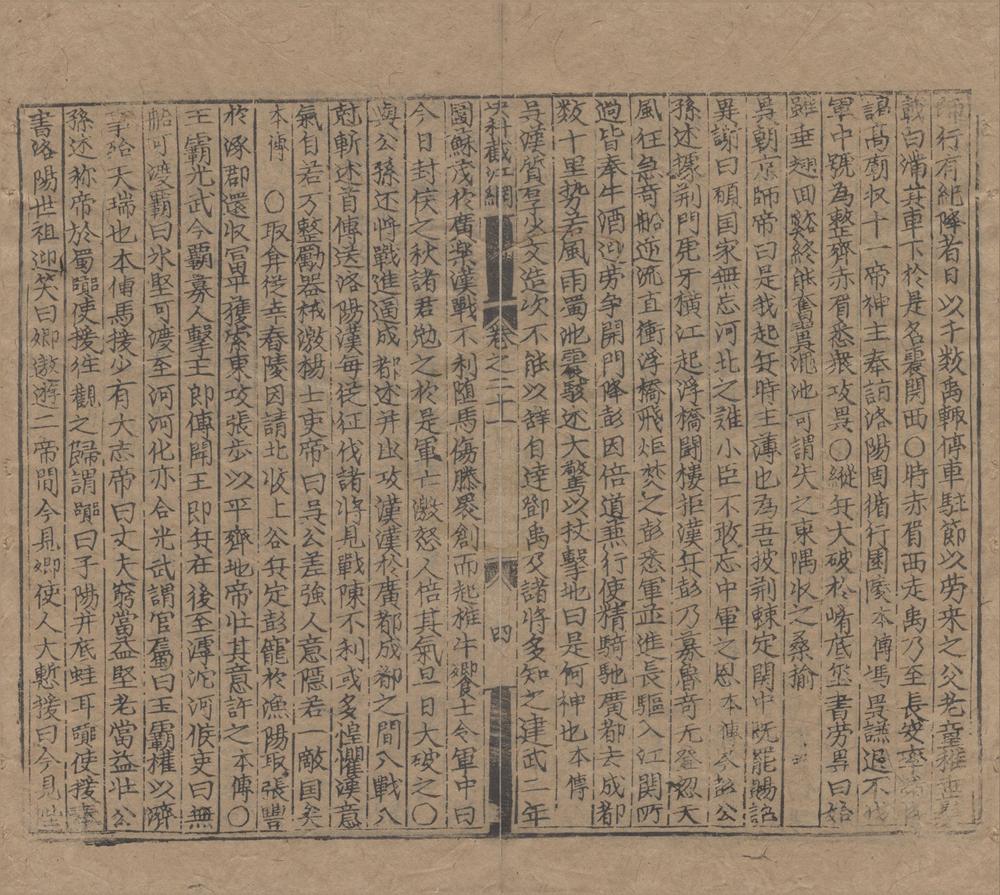 師行有紀降者日以千數禹輒停車駐節以勞來之父老童稚垂髫
戴白滿其車下於是名震関西○時赤眉西走禹乃至長安率諸將
謁髙廟収十一帝神主奉詣洛陽因循行園陵本傳馮異謙退不伐
軍中號為整齊赤眉悉衆攻異○縦兵大破於崤底垩書労異曰始
雖垂翅囬谿終能奮翼澠池可謂失之東隅収之桑揄
異朝京師帝曰是我起兵時主薄也為吾披荆棘定関中既罷賜詔
異謝曰碩国家無忘河北之難小臣不敢忘中軍之恩本傳岑彭公
孫述㨿荆門虎牙横江起浮橋鬪樓拒漢兵彭乃募魯竒无登忽天
風狂急竒船逆流直衝浮橋飛炬焚之彭悉軍並進長驅入江関所
過皆奉牛酒迎勞争開門降彭因倍道兼行使精騎馳廣都去成都
数十里㔟若風雨蜀地震駭述大驚以杖擊地曰是何神也本傳
呉漢質厚少文造次不能以辞自達鄧禹及諸將多知之建武二年
史科截江網 卷之二十一 四
圍蘇茂於廣樂漢戰不利随馬傷膝褁創而起椎牛饗士令軍中曰
今日封侯之秋諸君勉之於是軍士激怒人倍其氣旦日大破之○
與公孫述將戰進逼成都述并出攻漢漢於廣都成都之間八戰八
尅斬述首傳送洛陽漢每従征伐諸將見戰陳不利或多惶懼漢意
氣自若方整勵器械激揚士吏帝曰呉公差強人意隠若一敵国矣
本傳 ○耿弇從幸舂陵因請北收上谷兵定彭寵於漁陽取張豐
於涿郡還収冨平獲索東攻張步以平齊地帝壮其意許之本傳○
王霸光武令霸募人擊王郎傳聞王郎兵在後至滹沱河候吏曰無
船可渡霸曰氷堅可渡至河河化亦合光武謂官属曰王霸權以濟
事殆天瑞也本傳馬援少有大志帝曰丈夫窮當益堅老當益壮公
孫述称帝於蜀囂使援徃觀之歸謂囂曰子陽井底蛙耳囂使援奉
書洛陽世祖迎笑曰卿遨遊二帝間今見卿使人大慙援曰今見陛